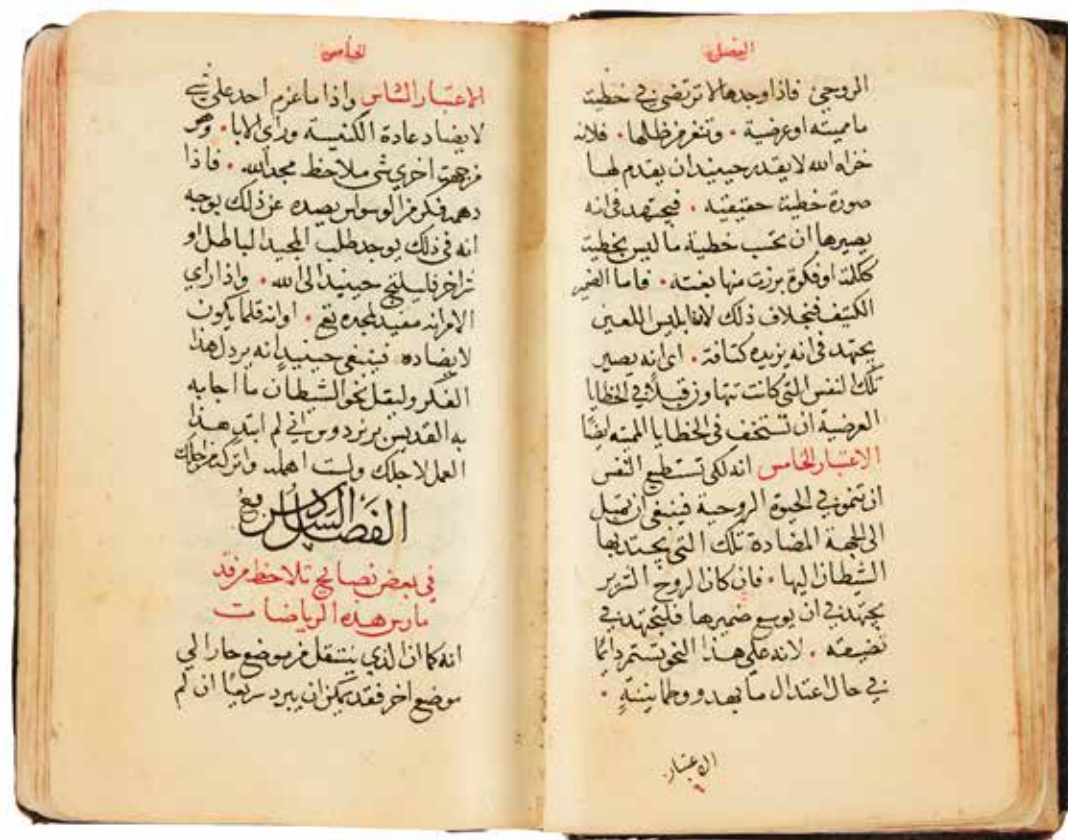 الفصل
الروحي فاذا وجدها لا ترتضي في خطية
ما مميته او عرضية . وتنفر من ظلها . فلانه
خزاه الله لا يقدر حينيد ان يقدم لها
صورة خطية حقيقيه . فيجتهد في انه
يصيرها ان تحسب خطية ما ليس بخطية
ككلمة او فكرة برزت منها بغتة . فاما الضمير
الكثيف فبخلاف ذلك لان ابليس اللعين
يجتهد في انه يزيده كثافة . اي انه يصير
تلك النفس التي كانت تتهاون قبلا في الخطايا
العرضية ان تستخف في الخطايا المميته ايضا
الاعتبار الخامس انه لكي تستطيع النفس
ان تنمو في الحيوة الروحية فينبغي ان تميل
الى الجهة المضادة تلك التي يجتذبها
الشيطان اليها . فان كان الروح الشرير
يجتهد في ان يوسع ضميرها فلتجتهد في
تضيقه . لانه على هذا النحو تستمر دائما
في حال اعتدال ما بهدو وطمانينة .
الاعتبار
الخامس
الاعتبار السادس واذا ما عزم احد على شي
لا يضاد عادة الكنيسة وراي الابا . وهو
من جهة اخرى شي ملاحظ مجد الله . فاذا
دهمه فكر من الوسواس يصده عن ذلك بوجه
انه في ذلك يوجد طلب المجد الباطل او
شر اخر فليلتج حينيد الى الله . واذا راي
الامر انه مفيد لمجده تع . او انه قلما يكون
لا يضاده . فينبغي حينيد انه يرذل هذا
الفكر وليقل نحو الشيطان ما اجابه
به القديس برنردوس اني لم ابتد هذا
العمل لاجلك ولست اهمله واتركه من اجلك
الفصل السادس
في بعض نصايح تلاحظ من قد
مارس هذه الرياضات
انه كما ان الذي ينتقل من موضع حار الي
موضع اخر فقد يمكن ان يبرد سريعا ان لم